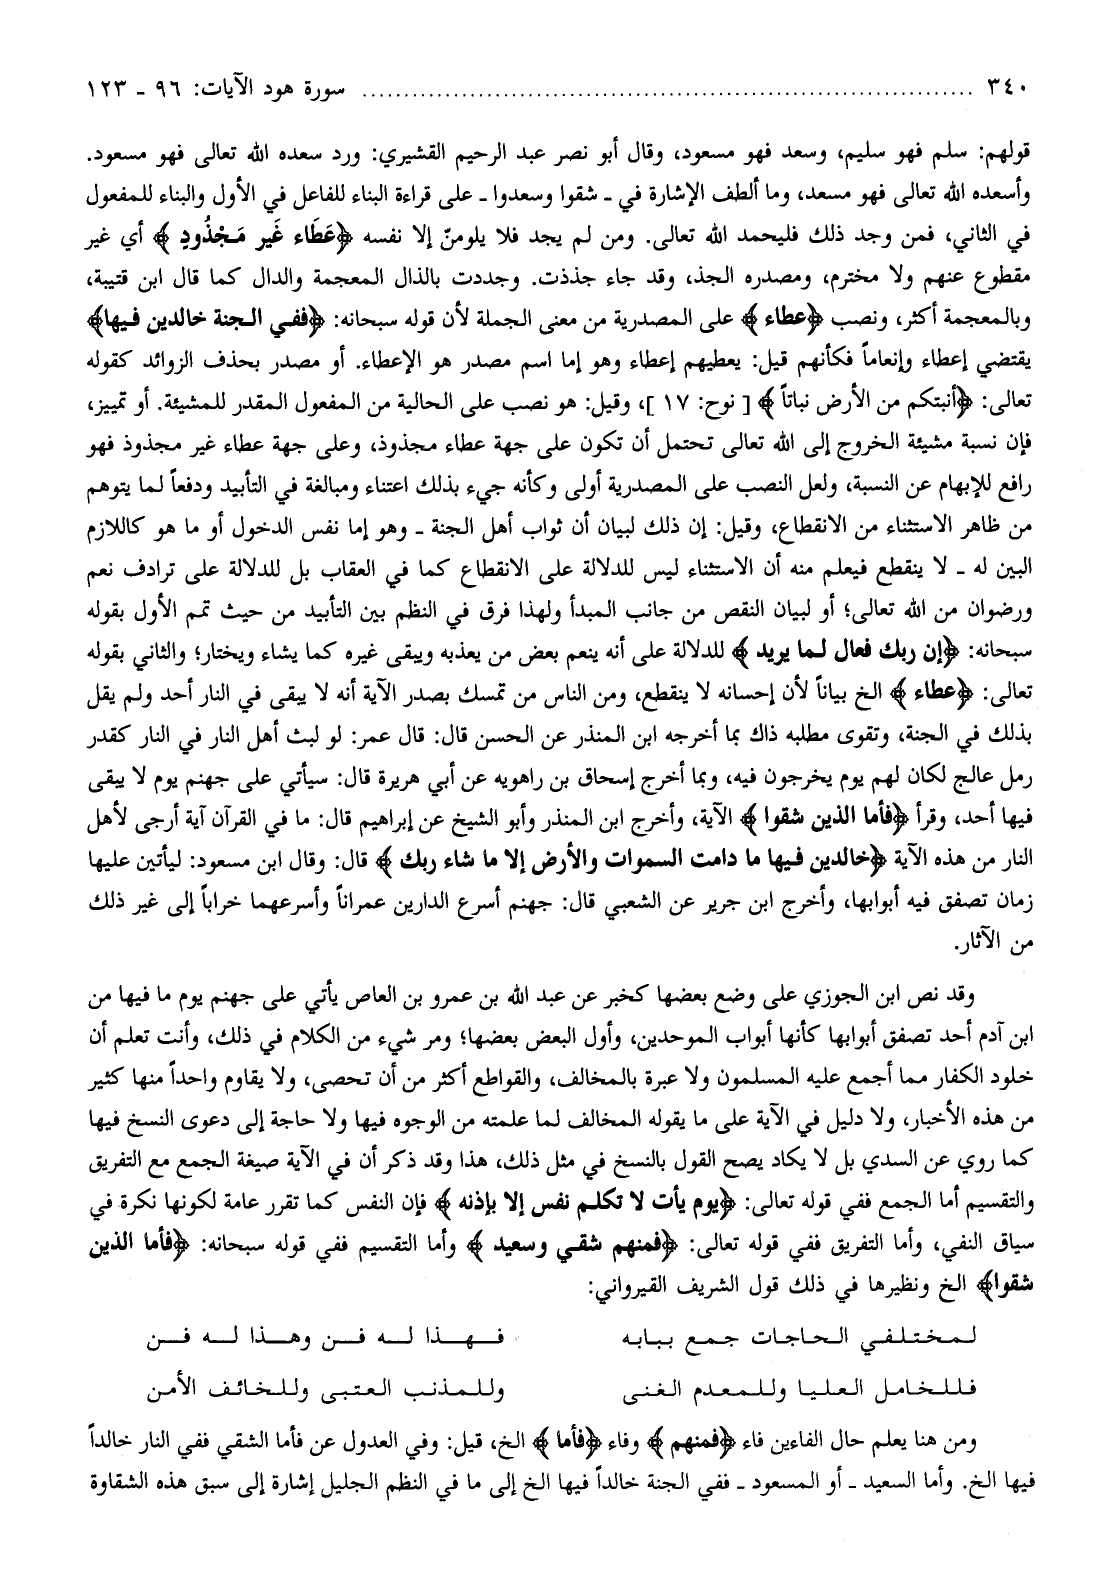 ٣٤٠ ........................................................................ سورة هود الآيات: ٩٦ ـ ١٢٣
قولهم: سلم فهو سليم، وسعد فهو مسعود، وقال أبو نصر عبد الرحيم القشيري: ورد سعده الله تعالى فهو مسعود.
وأسعده الله تعالى فهو مسعد، وما ألطف الإشارة في ـ شقوا وسعدوا ـ على قراءة البناء للفاعل في الأول والبناء للمفعول
في الثاني، فمن وجد ذلك فليحمد الله تعالى. ومن لم يجد فلا يلومنّ إلا نفسه ﴿عَطَاء غَير مَجْذُودٍ﴾ أي غير
مقطوع عنهم ولا مخترم، ومصدره الجذ، وقد جاء جذذت. وجددت بالذال المعجمة والدال كما قال ابن قتيبة،
وبالمعجمة أكثر، ونصب ﴿عطاء﴾ على المصدرية من معنى الجملة لأن قوله سبحانه: ﴿ففي الجنة خالدين فيها﴾
يقتضي إعطاء وإنعاماً فكأنهم قيل: يعطيهم إعطاء وهو إما اسم مصدر هو الإعطاء. أو مصدر بحذف الزوائد كقوله
تعالى: ﴿أنبتكم من الأرض نباتاً﴾ [ نوح: ١٧ ]، وقيل: هو نصب على الحالية من المفعول المقدر للمشيئة. أو تمييز،
فإن نسبة مشيئة الخروج إلى الله تعالى تحتمل أن تكون على جهة عطاء مجذوذ، وعلى جهة عطاء غير مجذوذ فهو
رافع للإبهام عن النسبة، ولعل النصب على المصدرية أولى وكأنه جيء بذلك اعتناء ومبالغة في التأبيد ودفعاً لما يتوهم
من ظاهر الاستثناء من الانقطاع، وقيل: إن ذلك لبيان أن ثواب أهل الجنة ـ وهو إما نفس الدخول أو ما هو كاللازم
البين له ـ لا ينقطع فيعلم منه أن الاستثناء ليس للدلالة على الانقطاع كما في العقاب بل للدلالة على ترادف نعم
ورضوان من الله تعالى؛ أو لبيان النقص من جانب المبدأ ولهذا فرق في النظم بين التأبيد من حيث تمم الأول بقوله
سبحانه: ﴿إن ربك فعال لما يريد﴾ للدلالة على أنه ينعم بعض من يعذبه ويبقى غيره كما يشاء ويختار؛ والثاني بقوله
تعالى: ﴿عطاء﴾ الخ بياناً لأن إحسانه لا ينقطع، ومن الناس من تمسك بصدر الآية أنه لا يبقى في النار أحد ولم يقل
بذلك في الجنة، وتقوى مطلبه ذاك بما أخرجه ابن المنذر عن الحسن قال: قال عمر: لو لبث أهل النار في النار كقدر
رمل عالج لكان لهم يوم يخرجون فيه، وبما أخرج إسحاق بن راهويه عن أبي هريرة قال: سيأتي على جهنم يوم لا يبقى
فيها أحد، وقرأ ﴿فأما الذين شقوا﴾ الآية، وأخرج ابن المنذر وأبو الشيخ عن إبراهيم قال: ما في القرآن آية أرجى لأهل
النار من هذه الآية ﴿خالدين فيها ما دامت السموات والأرض إلا ما شاء ربك﴾ قال: وقال ابن مسعود: ليأتين عليها
زمان تصفق فيه أبوابها، وأخرج ابن جرير عن الشعبي قال: جهنم أسرع الدارين عمراناً وأسرعهما خراباً إلى غير ذلك
من الآثار.
وقد نص ابن الجوزي على وضع بعضها كخبر عن عبد الله بن عمرو بن العاص يأتي على جهنم يوم ما فيها من
ابن آدم أحد تصفق أبوابها كأنها أبواب الموحدين، وأول البعض بعضها؛ ومر شيء من الكلام في ذلك، وأنت تعلم أن
خلود الكفار مما أجمع عليه المسلمون ولا عبرة بالمخالف، والقواطع أكثر من أن تحصى، ولا يقاوم واحداً منها كثير
من هذه الأخبار، ولا دليل في الآية على ما يقوله المخالف لما علمته من الوجوه فيها ولا حاجة إلى دعوى النسخ فيها
كما روي عن السدي بل لا يكاد يصح القول بالنسخ في مثل ذلك، هذا وقد ذكر أن في الآية صيغة الجمع مع التفريق
والتقسيم أما الجمع ففي قوله تعالى: ﴿يوم يأت لا تكلم نفس إلا بإذنه﴾ فإن النفس كما تقرر عامة لكونها نكرة في
سياق النفي، وأما التفريق ففي قوله تعالى: ﴿فمنهم شقي وسعيد﴾ وأما التقسيم ففي قوله سبحانه: ﴿فأما الذين
شقوا﴾ الخ ونظيرها في ذلك قول الشريف القيرواني:
لمختلفي الحاجات جمع ببابه فهذا له فن وهذا له فن
فللخامل العليا وللمعدم الغنى وللمذنب العتبى وللخائف الأمن
ومن هنا يعلم حال الفاءين فاء ﴿فمنهم﴾ وفاء ﴿فأما﴾ الخ، قيل: وفي العدول عن فأما الشقي ففي النار خالداً
فيها الخ. وأما السعيد ـ أو المسعود ـ ففي الجنة خالداً فيها الخ إلى ما في النظم الجليل إشارة إلى سبق هذه الشقاوة